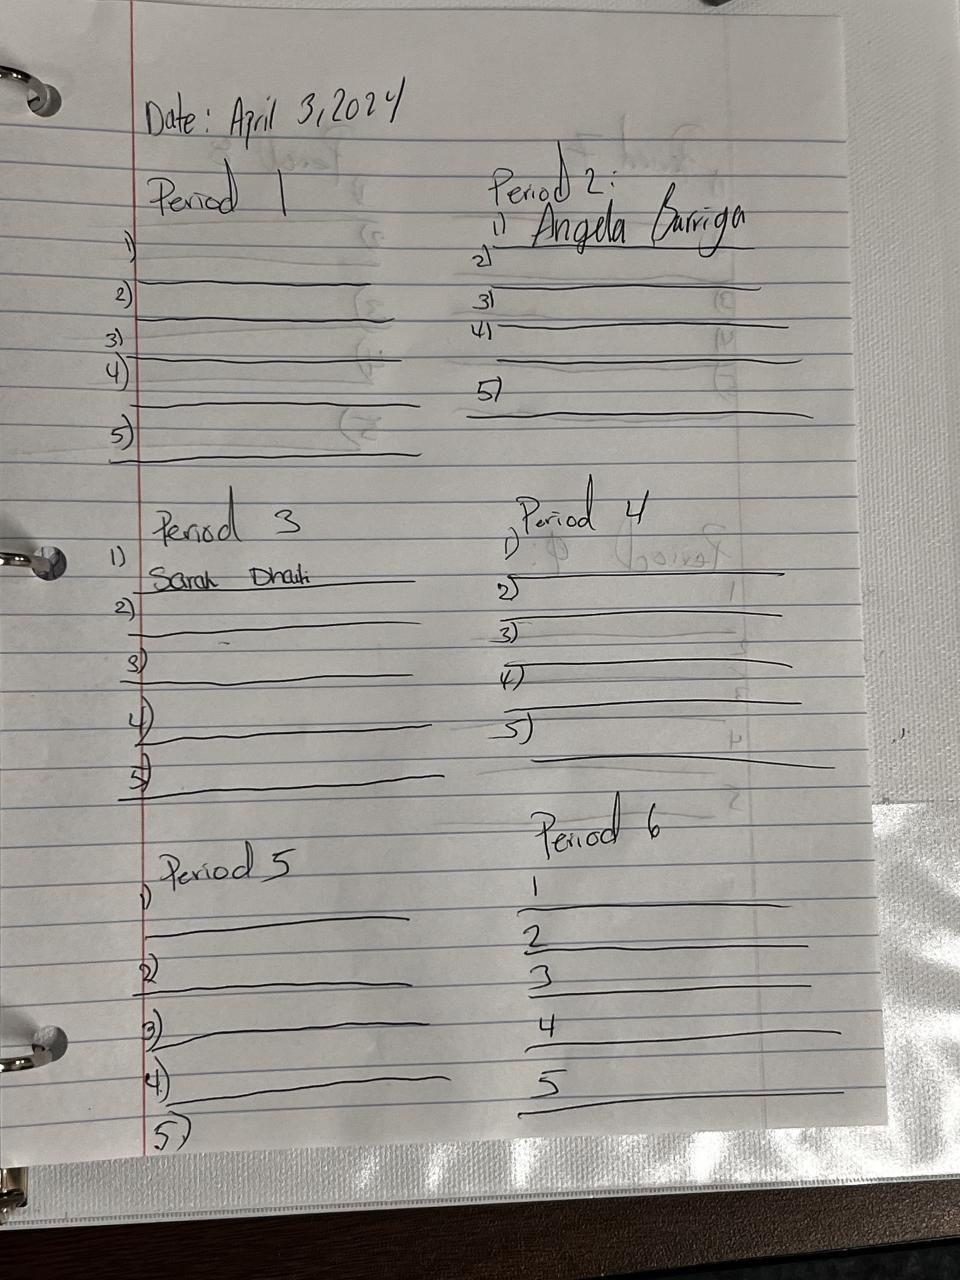 Date: April 3, 2024
Period 1
1)
2)
3)
4)
5)
Period 2:
1) Angela Barriga
2)
3)
4)
5)
Period 3
1) Sarah
2)
3)
4)
5)
Period 4
1)
2)
3)
4)
5)
Period 5
1)
2)
3)
4)
5)
Period 6
1
2
3
4
5